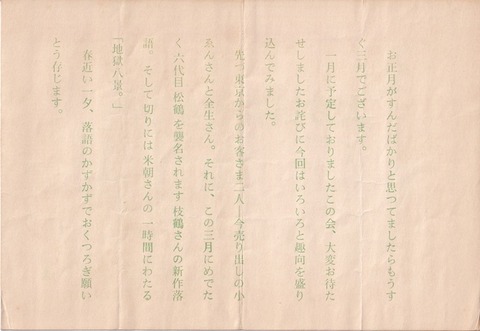 お正月がすんだばかりと思つてましたらもうす
ぐ三月でございます。
一月に予定しておりましたこの会、大変お待た
せしましたお詫びに今回はいろいろと趣向を盛り
込んでみました。
先づ東京からのお客さま二人―今売り出しの小
ゑんさんと全生さん。それに、この三月にめでた
く六代目松鶴を襲名されます枝鶴さんの新作落
語。そして切りには米朝さんの一時間にわたる
「地獄八景。」
春近い一夕、落語のかずかずでおくつろぎ願い
とう存じます。